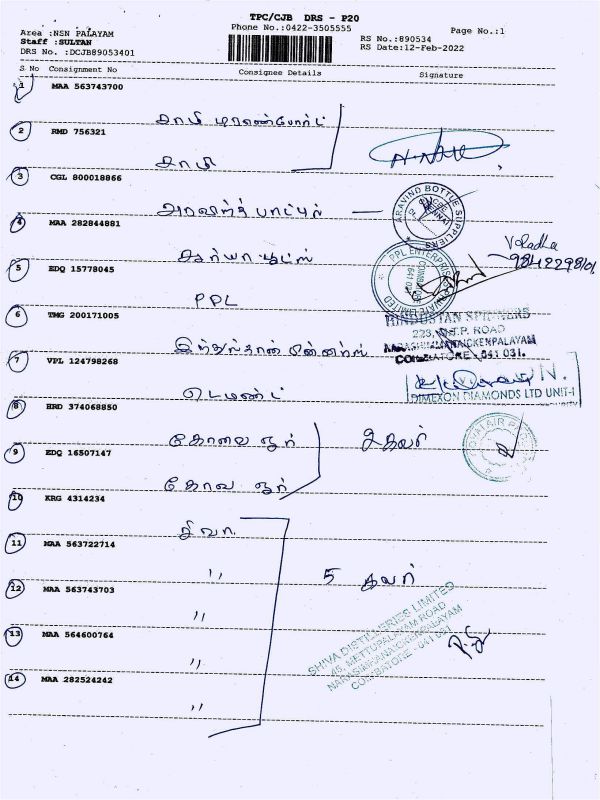 TPC/CJB DRS - P20
Area :NSN PALAYAM
Phone No.:0422-3505555
Page No.:1
Staff :SULTAN
RS No.:890534
DRS No. :DCJB89053401
RS Date:12-Feb-2022
S No Consignment No Consignee Details Signature
1 MAA 563743700
2 RMD 756321
3 CGL 800018866
ARAVIND BOTTLE SUPPLIERS
4 MAA 282844881
Vo Radha
9842298101
5 EDQ 15778045
PPL
PPL ENTERPRISES PRIVATE LIMITED
6 TMG 200171005
HINDUSTAN SPINNERS
ROAD
NARASIMMANAICKENPALAYAM
COIMBATORE - 641 031.
இந்துஸ்தான்
7 VPL 124798268
DIMEXON DIAMONDS LTD UNIT-I
8 HRD 374068850
கோவை ஏர்
2 கவர்
9 EDQ 16507147
ஏர்
10 KRG 4314234
சிவா
11 MAA 563722714
" 5 கவர்
12 MAA 563743703
"
SHIVA DISTILLERIES LIMITED
METTUPALAYAM ROAD
NARASIMHANAICKENPALAYAM
COIMBATORE - 641 031
13 MAA 564600764
"
14 MAA 282524242
"